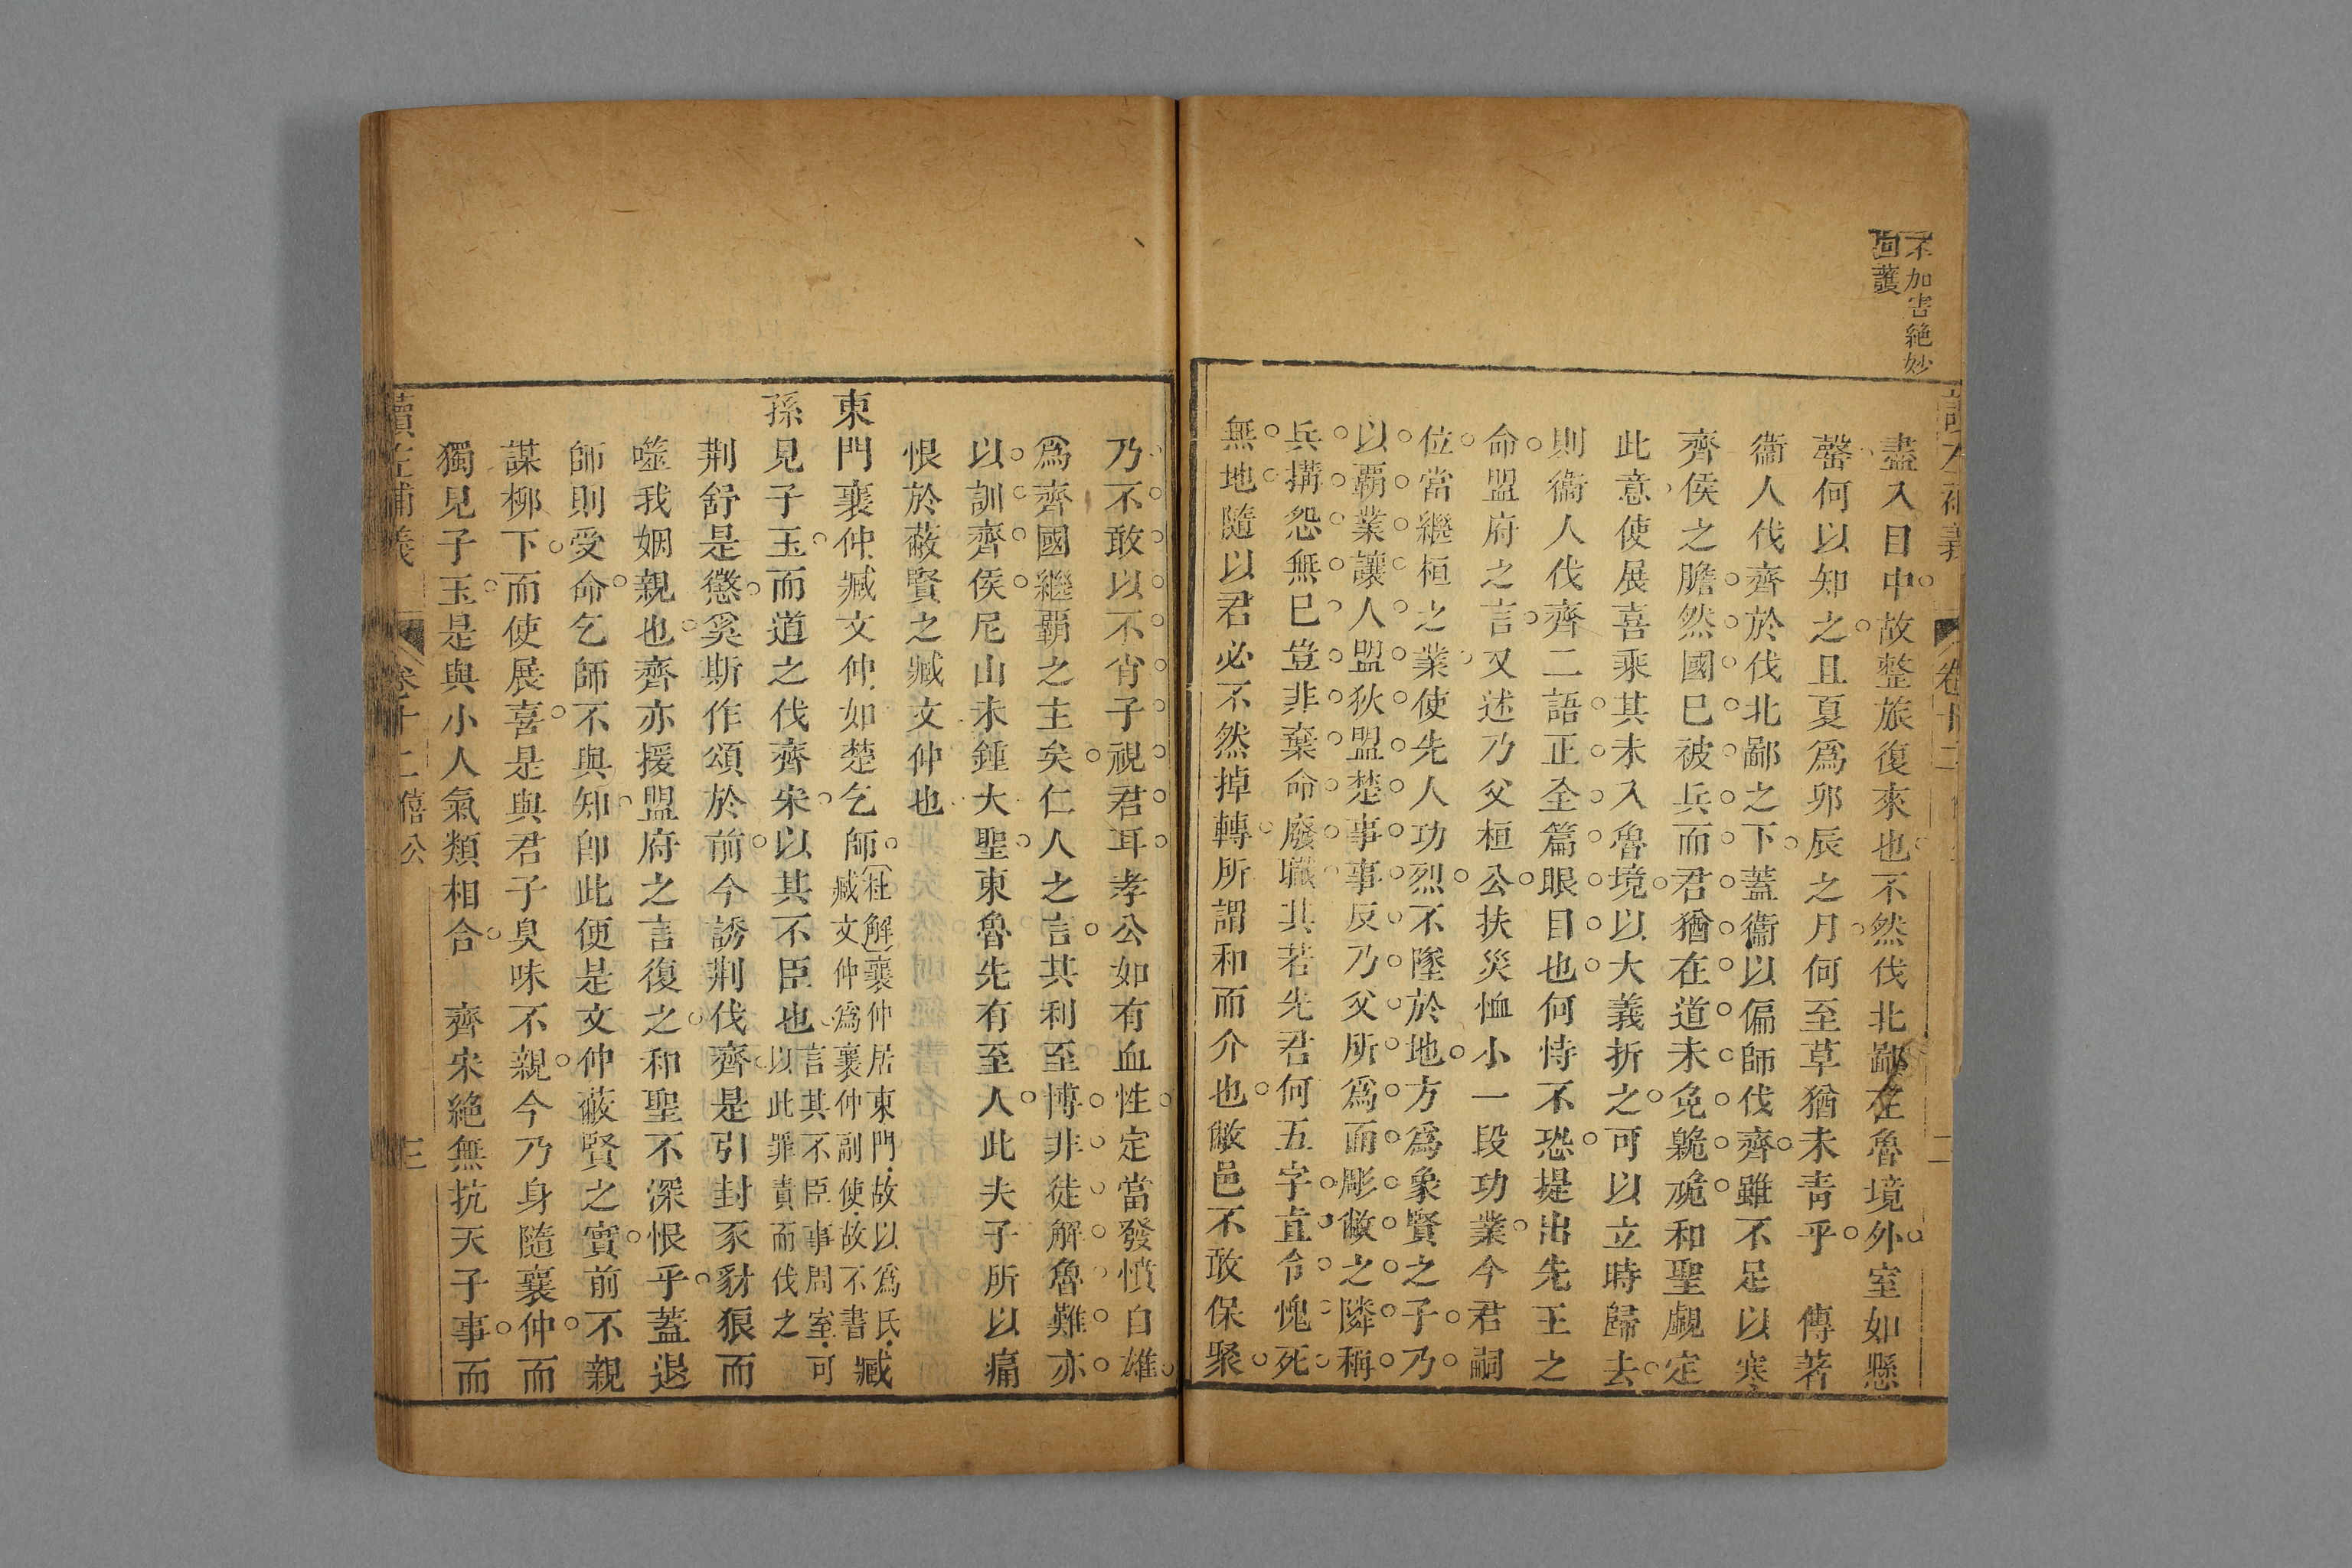 不加害絶妙
回護
盡入目中故整旅復來也不然伐北鄙在魯境外室如懸
罄何以知之且夏爲卯辰之月何至草猶未青乎　傳著
衞人伐齊於伐北鄙之下蓋衞以偏師伐齊雖不足以寒
齊侯之膽然國巳被兵而君猶在道未免臲卼和聖覷定
此意使展喜乘其未入魯境以大義折之可以立時歸去
則衞人伐齊二語正全篇眼目也何恃不恐提出先王之
命盟府之言又述乃父桓公扶災恤小一段功業今君嗣
位當繼桓之業使先人功烈不墜於地方爲象賢之子乃
以覇業讓人盟狄盟楚事事反乃父所爲而彫敝之隣稱
兵搆怨無巳豈非棄命廢職其若先君何五字直令愧死
無地隨以君必不然掉轉所謂和而介也敝邑不敢保聚
乃不敢以不肖子視君耳孝公如有血性定當發憤自雄
爲齊國繼覇之主矣仁人之言其利至博非徒解魯難亦
以訓齊侯尼山未鍾大聖東魯先有至人此夫子所以痛
恨於蔽賢之臧文仲也
東門襄仲臧文仲如楚乞師杜解襄仲居東門故以爲氏臧
臧文仲爲襄仲副使故不書
孫見子玉而道之伐齊宋以其不臣也言其不臣事周室可
以此罪責而伐之
荆舒是懲奚斯作頌於前今誘荆伐齊是引封豕豺狼而
噬我姻親也齊亦援盟府之言復之和聖不深恨乎蓋退
師則受命乞師不與知即此便是文仲蔽賢之實前不親
謀柳下而使展喜是與君子臭味不親今乃身隨襄仲而
獨見子玉是與小人氣類相合　齊宋絶無抗天子事而
讀左補義　卷十二僖公　三